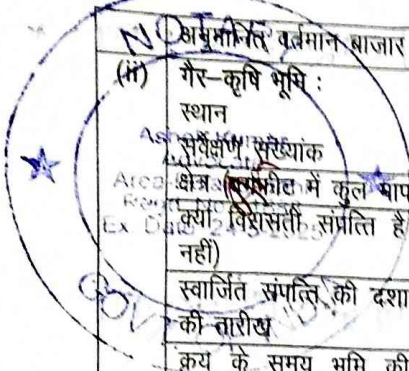 अनुमानित वर्तमान बाजार
(ii) गैर-कृषि भूमि :
स्थान
सर्वेक्षण संख्यांक
क्षेत्र (वर्गफीट में कुल माप
क्या विरासती संपत्ति है
नहीं)
स्वार्जित संपत्ति की दशा
की तारीख
क्रय के समय भूमि की